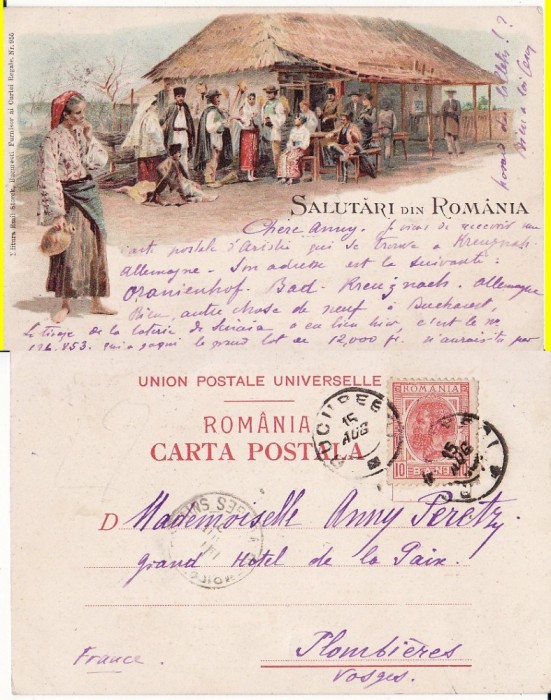 Editura Emil Storck, Bucuresti, Furnisor al Curtei Regale. Nr. 955
SALUTĂRI DIN ROMÂNIA
Chère Anny. Je viens de recevoir une
carte postale d'Aristki qui se trouve a Kreuznach
Allemagne. Son adresse est la suivante:
Oranienhof. Bad. Kreuznach. Allemagne
Rien, autre chose de neuf à Bucharest,
Le tirage de la loterie de Sinaia a eu lieu hier, c'est le no
176.853. qui a gagné le grand lot de 12,000 fr. n'aurais tu pas
UNION POSTALE UNIVERSELLE
ROMÂNIA
CARTA POSTALA
BUCURESCI
15
AUG
10 BANI 10
15
AUG
D Mademoiselle Anny Peretz.
Grand Hotel de la Paix.
Plombières
Vosges.
France.